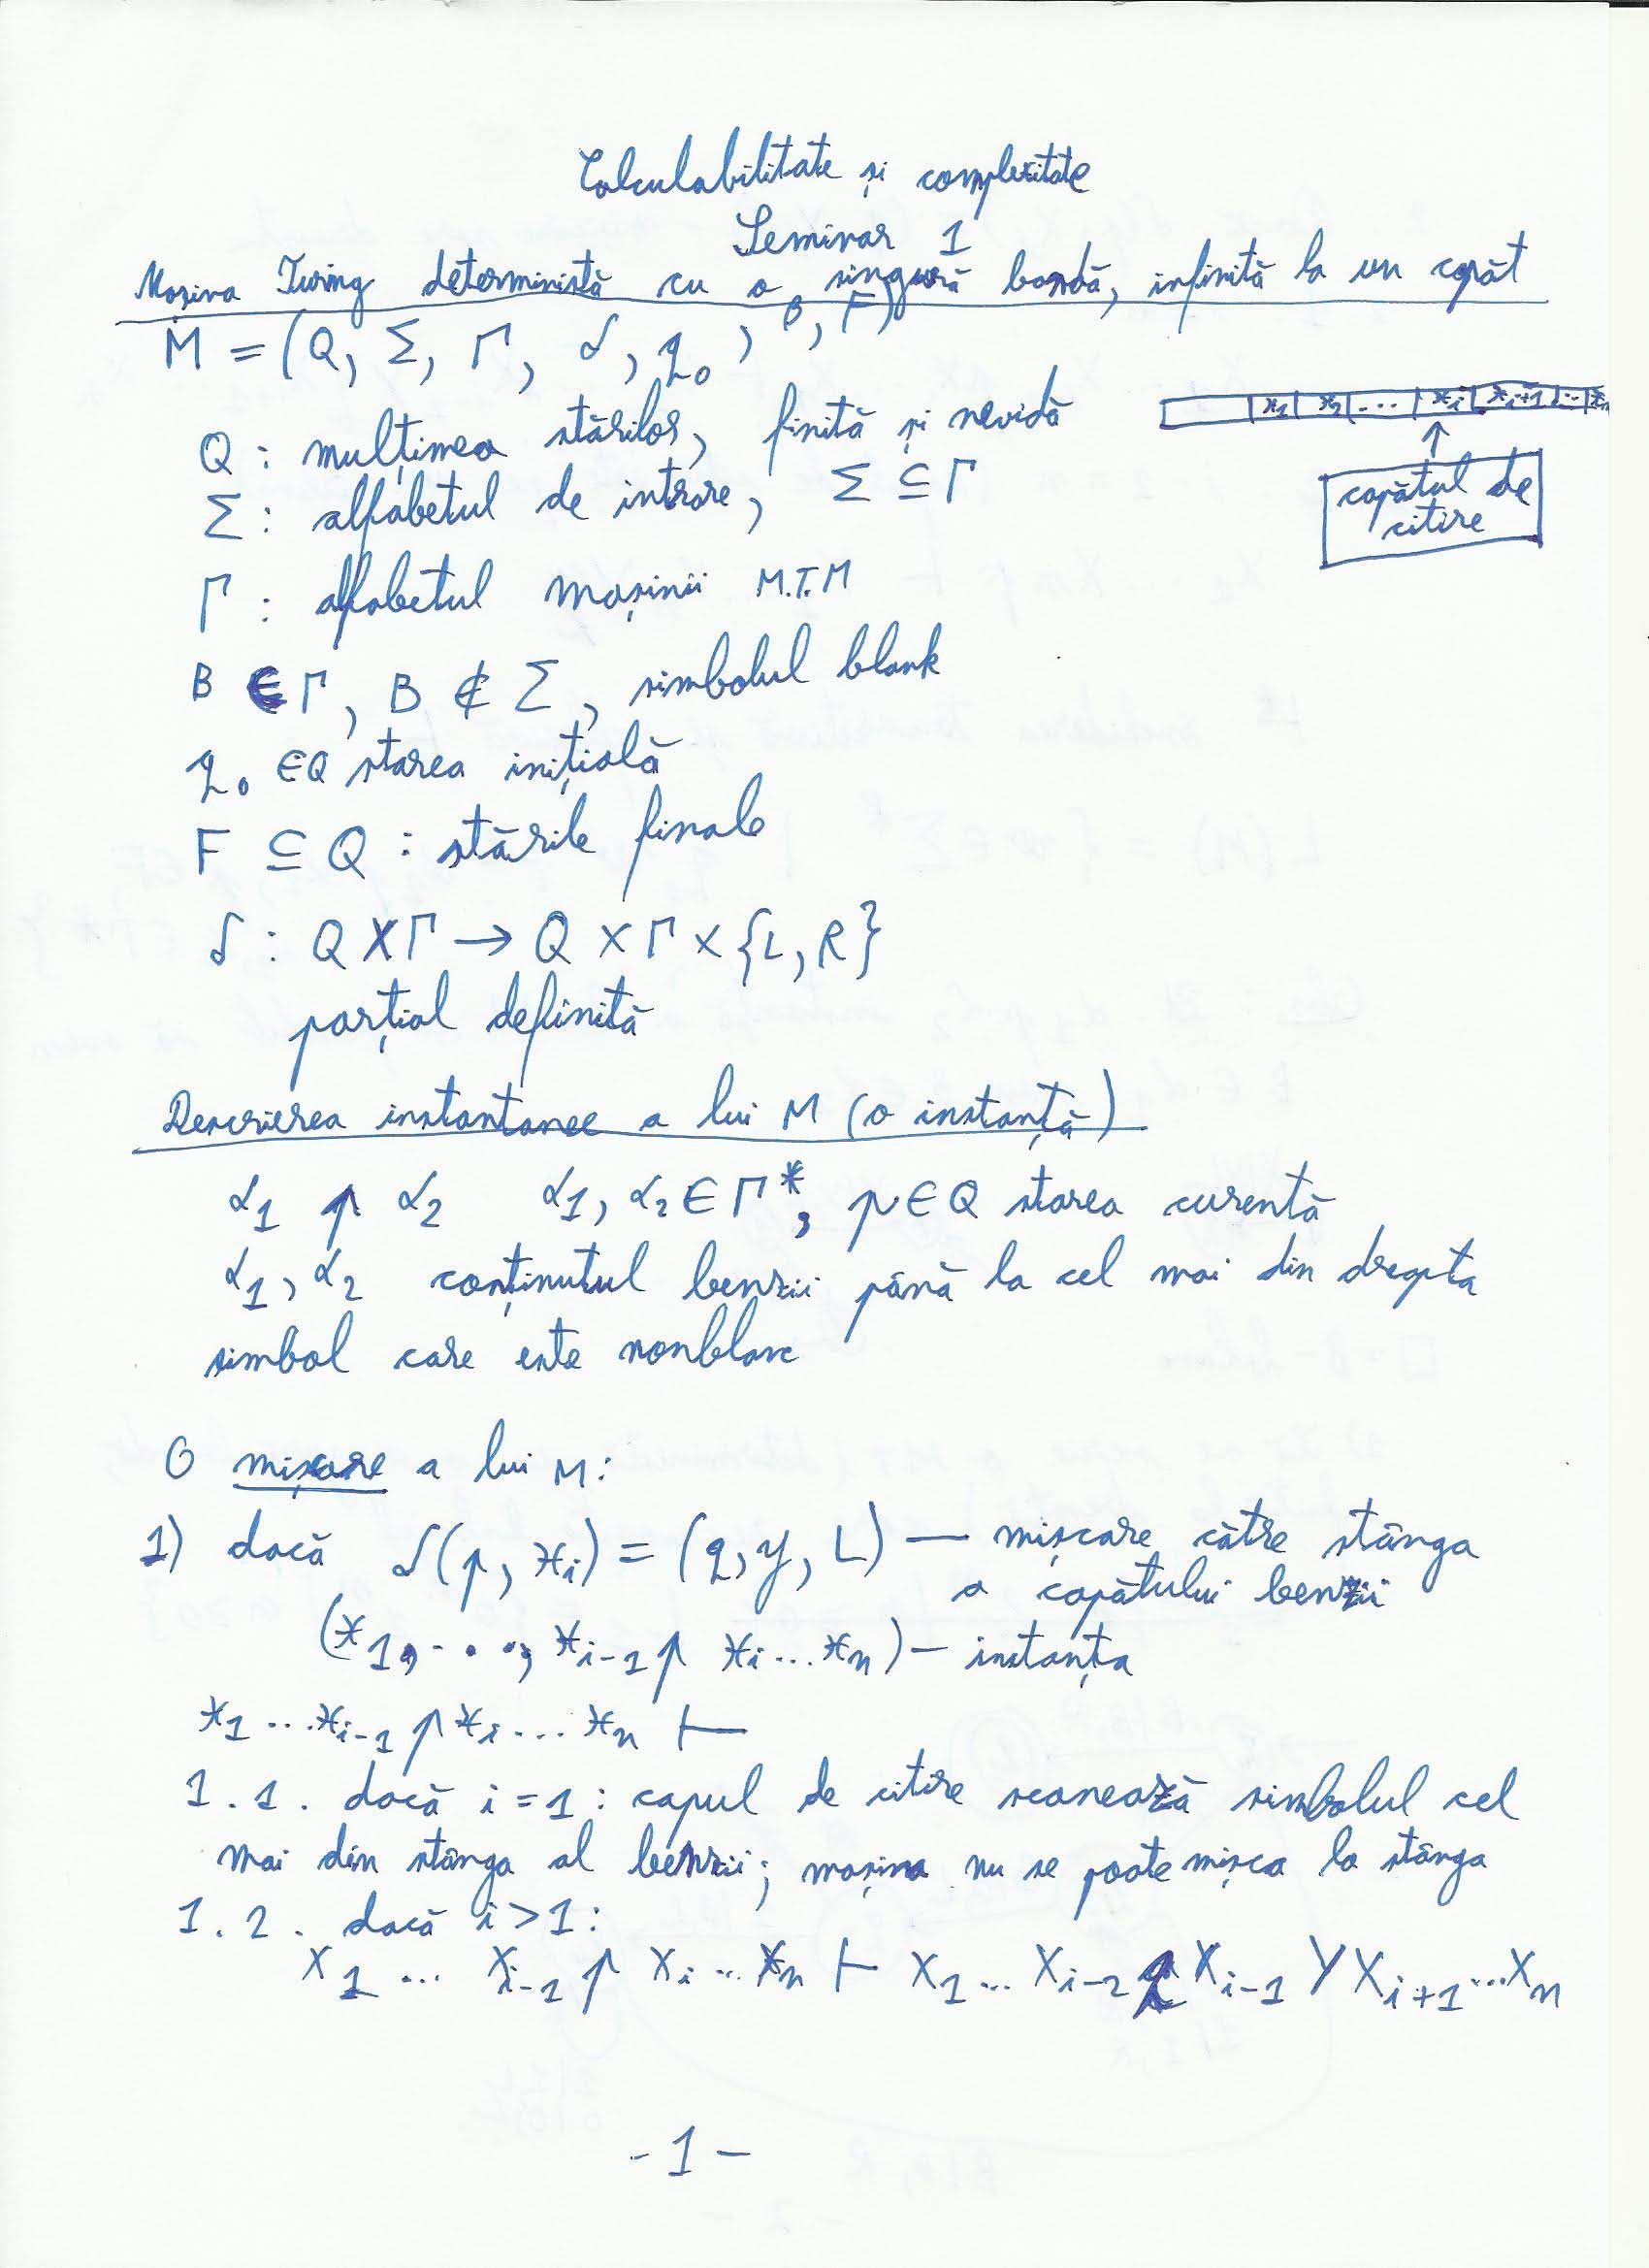 Calculabilitate și complexitate
Seminar 1
Mașina Turing deterministă cu o singură bandă, infinită la un capăt
M = (Q, Σ, Γ, δ, q₀, B, F)
x₁ x₂ ... xᵢ xᵢ₊₁ ... xₙ
Q : mulțimea stărilor, finită și nevidă
capătul de
citire
Σ : alfabetul de intrare, Σ ⊆ Γ
Γ : alfabetul mașinii M.T.M
B ∈ Γ, B ∉ Σ, simbolul blank
q₀ ∈ Q starea inițială
F ⊆ Q : stările finale
δ : Q × Γ → Q × Γ × {L, R}
parțial definită
Descrierea instantanee a lui M (o instanță)
α₁ p α₂ α₁, α₂ ∈ Γ*, p ∈ Q starea curentă
α₁, α₂ conținutul benzii până la cel mai din dreapta
simbol care este nonblanc
O mișcare a lui M:
1) dacă δ(p, xᵢ) = (q, y, L) — mișcare către stânga
a capătului benzii
(x₁, . . ., xᵢ₋₁ p xᵢ ... xₙ) — instanța
x₁ ... xᵢ₋₁ p xᵢ ... xₙ ⊢
1.1. dacă i = 1 : capul de citire scanează simbolul cel
mai din stânga al benzii; mașina nu se poate mișca la stânga
1.2. dacă i > 1 :
X₁ ... Xᵢ₋₁ p Xᵢ ... Xₙ ⊢ X₁ ... Xᵢ₋₂ q Xᵢ₋₁ Y Xᵢ₊₁ ... Xₙ
- 1 -